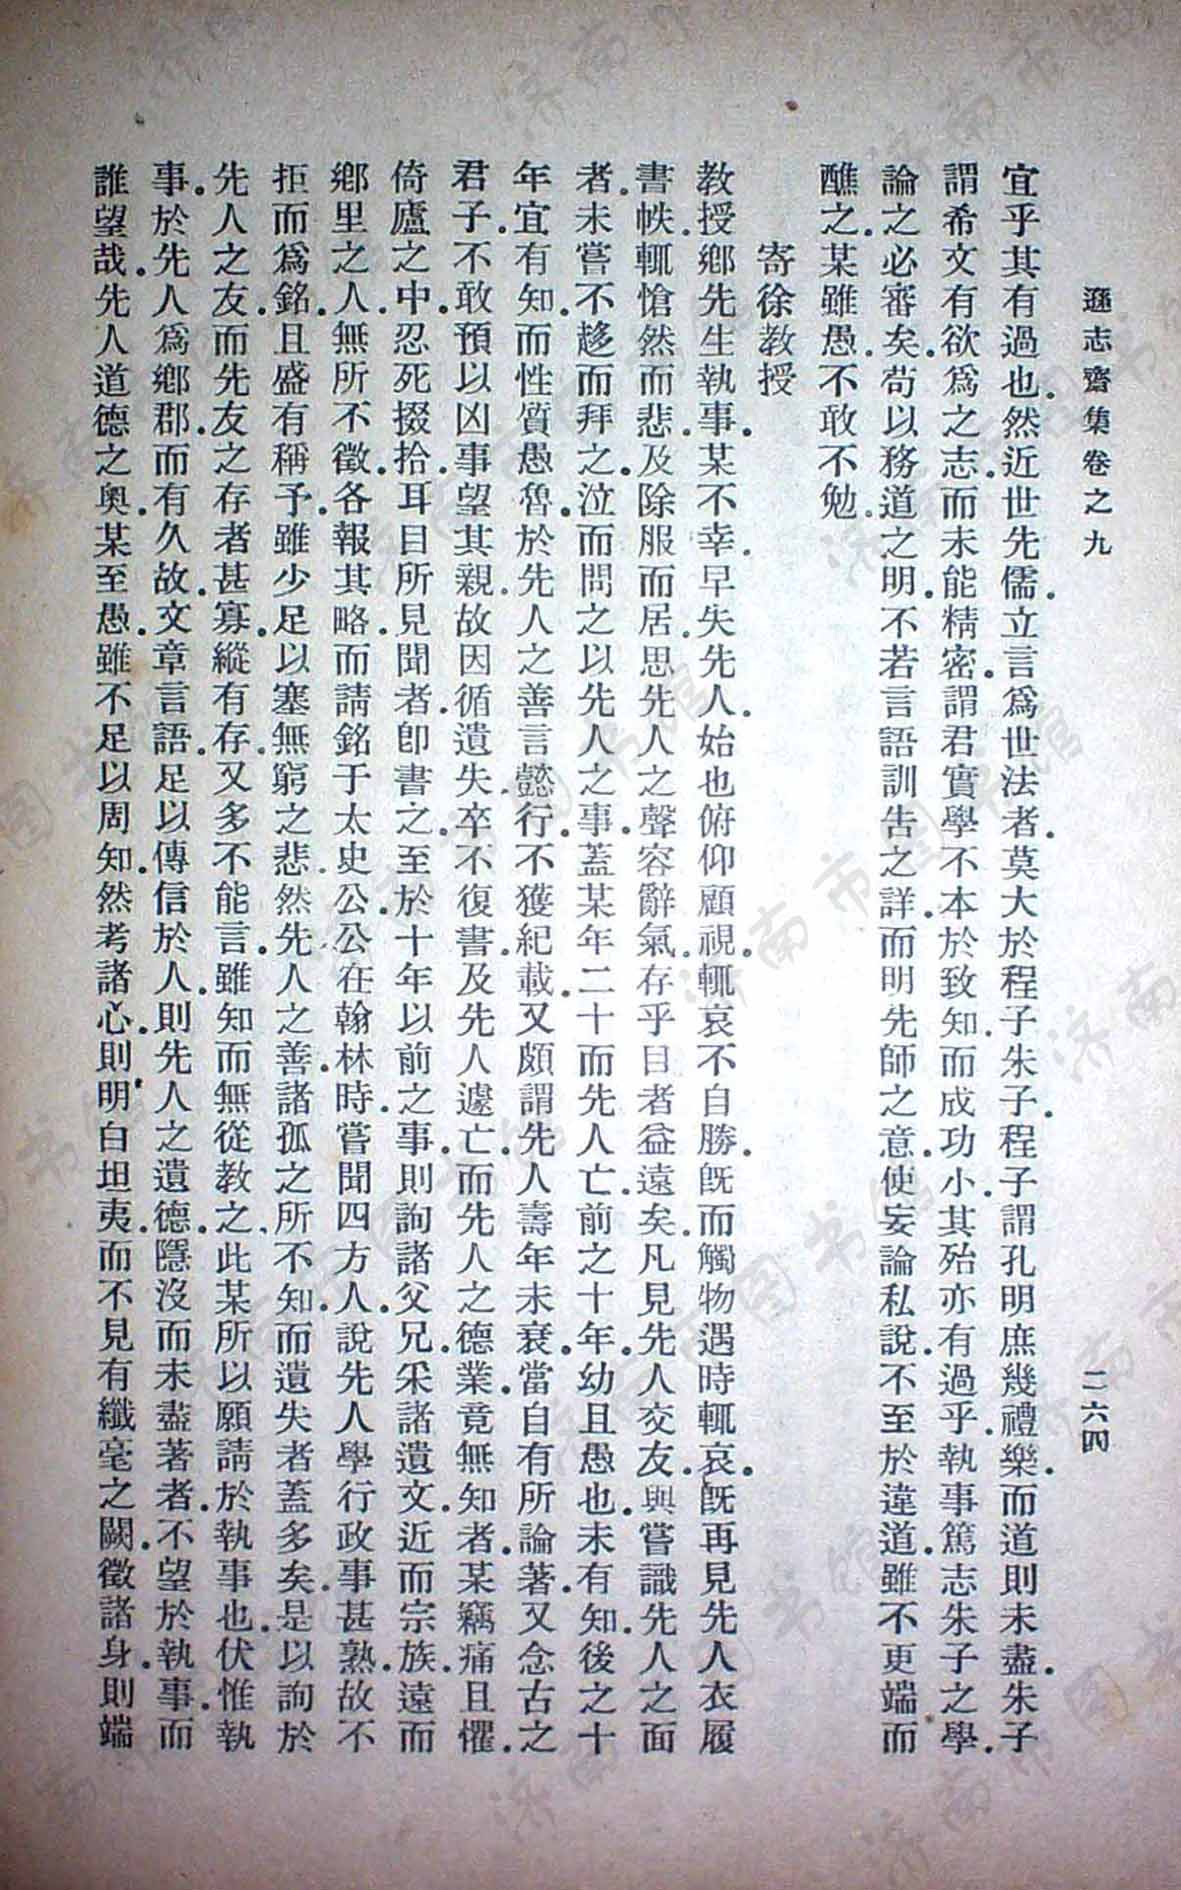 遜志齋集卷之九
二六四
宜乎其有過也.然近世先儒.立言爲世法者.莫大於程子朱子.程子謂孔明庶幾禮樂.而道則未盡.朱子
謂希文有欲爲之志.而未能精密.謂君實學不本於致知.而成功小.其殆亦有過乎.執事篤志朱子之學.
論之必審矣.苟以務道之明.不若言語訓告之詳.而明先師之意.使妄論私說.不至於違道.雖不更端而
醮之.某雖愚.不敢不勉.
寄徐教授
教授鄉先生執事.某不幸.早失先人.始也俯仰顧視.輒哀不自勝.旣而觸物遇時輒哀.旣再見先人衣履
書帙.輒愴然而悲.及除服而居.思先人之聲容辭氣.存乎目者益遠矣.凡見先人交友.與嘗識先人之面
者.未嘗不趍而拜之.泣而問之以先人之事.蓋某年二十而先人亡.前之十年.幼且愚也.未有知.後之十
年.宜有知.而性質愚魯.於先人之善言懿行.不獲紀載.又頗謂先人壽年未衰.當自有所論著.又念古之
君子.不敢預以凶事望其親.故因循遺失.卒不復書.及先人遽亡.而先人之德業.竟無知者.某竊痛且懼.
倚廬之中.忍死掇拾.耳目所見聞者.卽書之.至於十年以前之事.則詢諸父兄.采諸遺文.近而宗族.遠而
鄉里之人.無所不徵.各報其略.而請銘于太史公.公在翰林時.嘗聞四方人.說先人學行政事甚熟.故不
拒而爲銘.且盛有稱予.雖少足以塞無窮之悲.然先人之善.諸孤之所不知.而遺失者蓋多矣.是以詢於
先人之友.而先友之存者甚寡.縱有存.又多不能言.雖知而無從敎之.此某所以願請於執事也.伏惟執
事.於先人爲鄉郡.而有久故.文章言語.足以傳信於人.則先人之遺德.隱沒而未盡著者.不望於執事.而
誰望哉.先人道德之奧.某至愚.雖不足以周知.然考諸心.則明白坦夷.而不見有纖毫之闕.徵諸身.則端